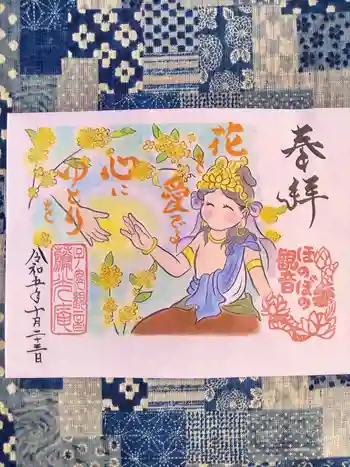 奉拝
花を
愛でよ
心に
ゆとり
を
ほのぼの
観音
令和五年十月二十三日